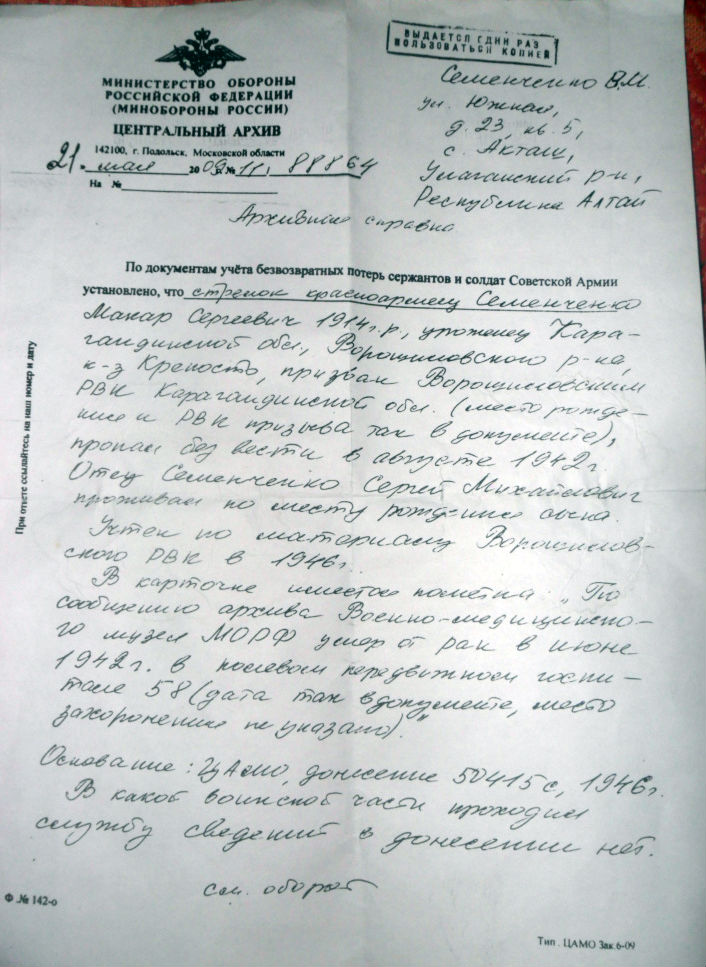 ВЫДАЕТСЯ ЕДИН РАЗ
ПОЛЬЗОВАТЬСЯ КОПИЕЙ
МИНИСТЕРСТВО ОБОРОНЫ
РОССИЙСКОЙ ФЕДЕРАЦИИ
(МИНОБОРОНЫ РОССИИ)
ЦЕНТРАЛЬНЫЙ АРХИВ
142100, г. Подольск, Московской области
21 мая 2009 г. № 11/ 88864
На №
Семенченко В.М.
ул. Южная,
д. 23, кв. 5,
с. Акташ,
Улаганский р-н,
Республика Алтай
Архивная справка
По документам учёта безвозвратных потерь сержантов и солдат Советской Армии
установлено, что стрелок красноармеец Семенченко
Макар Сергеевич 1914 г.р., уроженец Кара-
гандинской обл., Ворошиловского р-на,
к-з Крепость, призван Ворошиловским
РВК Карагандинской обл. (место рожде-
ния и РВК призыва так в документе),
пропал без вести в августе 1942 г.
Отец Семенченко Сергей Михайлович
проживал по месту рождения сына.
Учтен по материалу Ворошилов-
ского РВК в 1946 г.
В карточке имеется пометка: „По
сообщению архива Военно-медицинско-
го музея МОРФ умер от ран в июне
1942 г. в полевом передвижном госпи-
тале 58 (дата так в документе, место
захоронения не указано)."
Основание: ЦАМО, донесение 50415с, 1946 г.
В какой воинской части проходил
службу сведений в донесении нет.
см. оборот
При ответе ссылайтесь на наш номер и дату
Ф. № 142-о
Тип. ЦАМО Зак.6-09